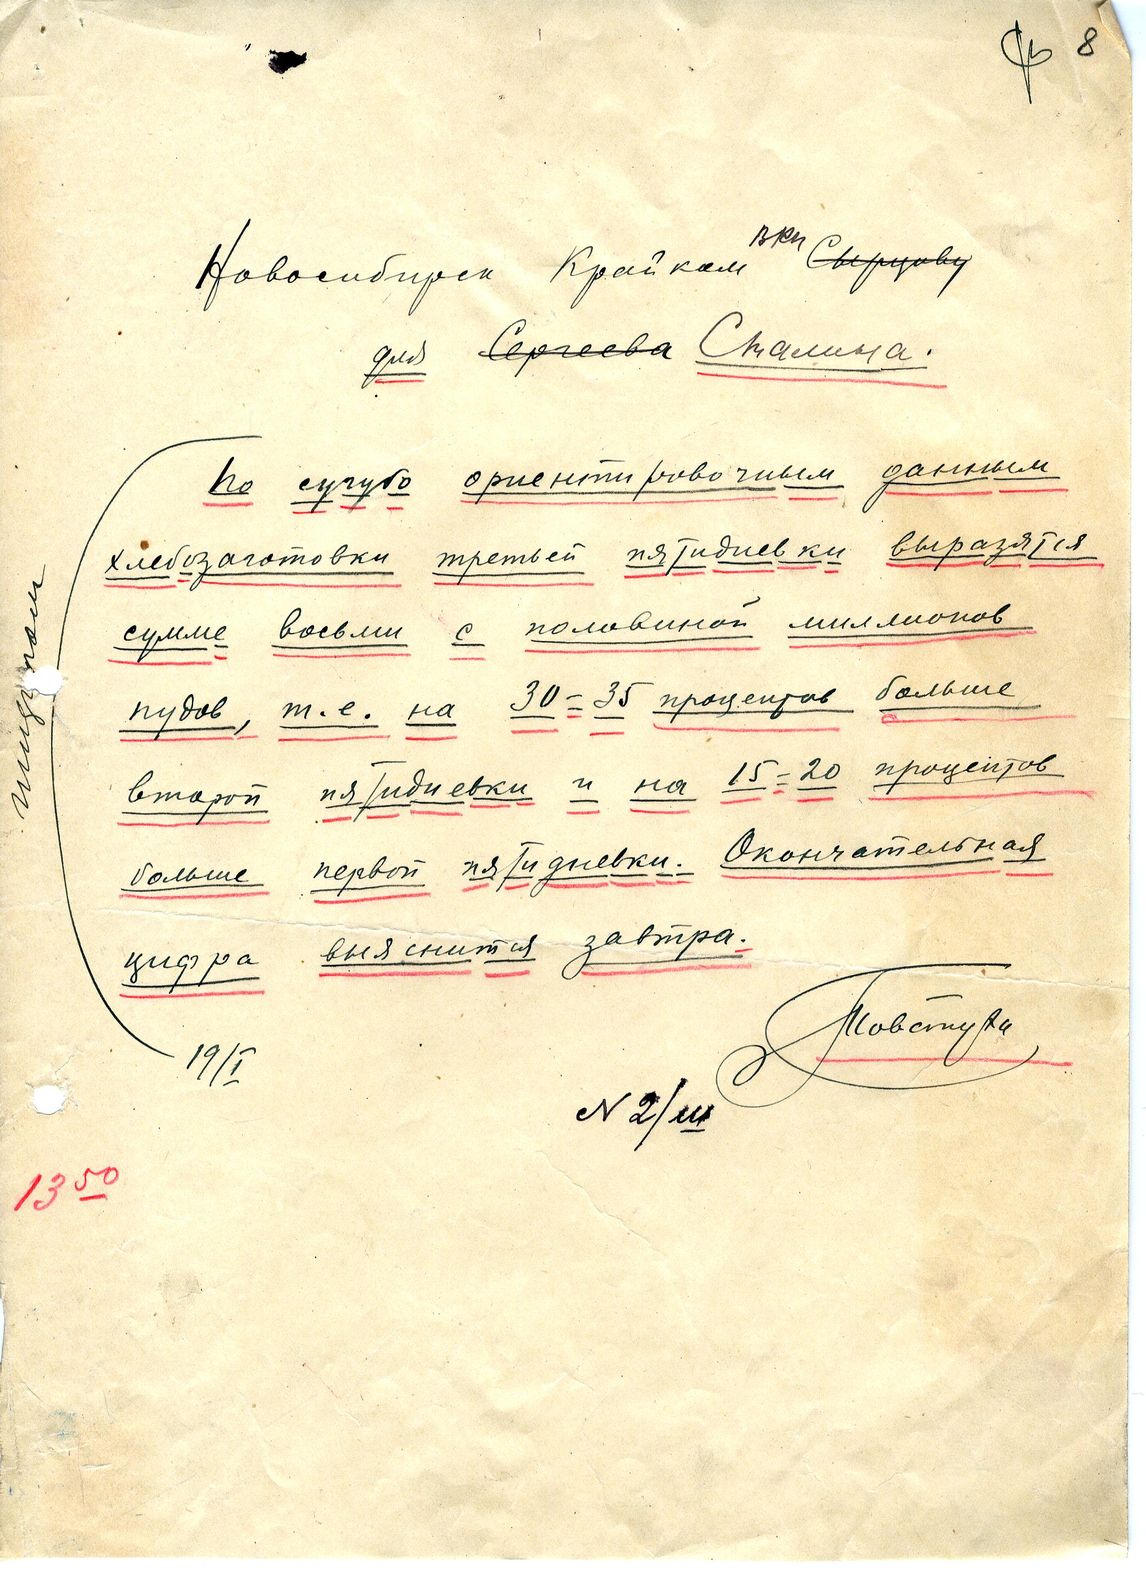 8
Новосибирск Крайком ВКП Сырцову
для Сергеева Сталина.
По сугубо ориентировочным данным
хлебозаготовки третьей пятидневки выразятся
сумме восьми с половиной миллионов
пудов, т.е. на 30=35 процентов больше
второй пятидневки и на 15=20 процентов
больше первой пятидневки. Окончательная
цифра выяснится завтра.
Товстуха
19/I
N 2/ш
13 50
шифром